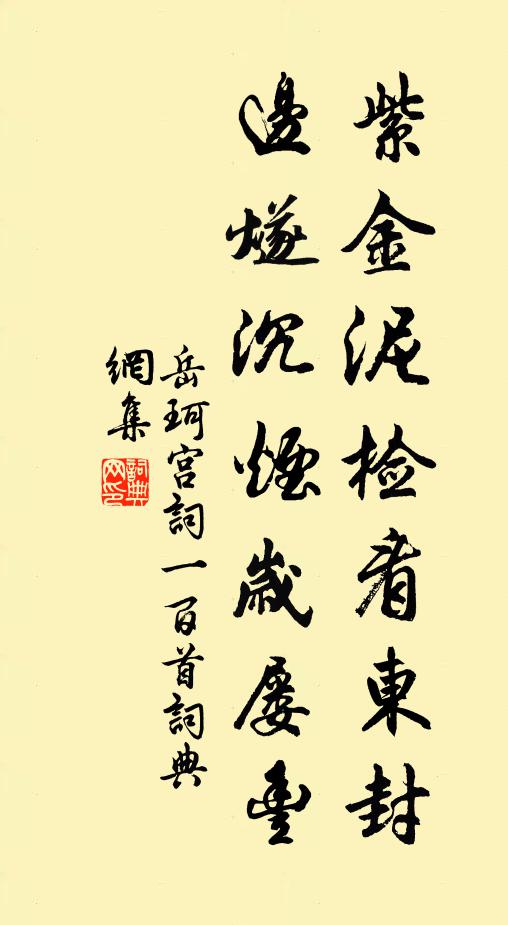 紫金泥检看東封
邊燧沉煙歲屡豐
岳珂宫詞一百首詞典
網集
詞典
网印